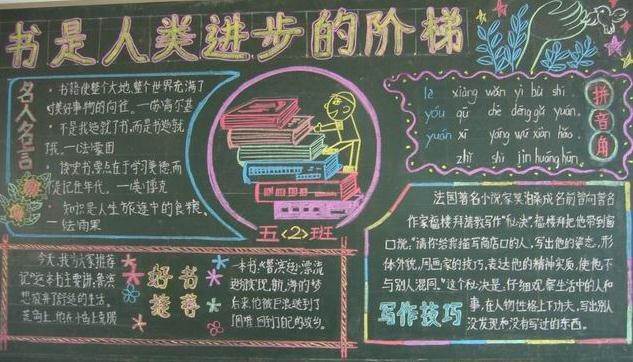 书是人类进步的阶梯
名人名言
· 书籍使整个大地,整个世界充满了
对美好事物的向往。—苏·高尔基
· 不是我造就了书,而是书造就
了我.—法·蒙田
· 读史书,要点在于学习美德而
不是记住年代。—英·博克
· 知识是人生旅途中的食粮.
—法·雨果
五<2>班
拼音角
xiàng wǎn yì bù shì
yóu qū chē dēng gǔ yuán
yuán xī yáng wú xiàn hǎo
zhǐ shì jìn huáng hūn
今天,我为大家推荐
好书推荐
一本书,《鲁滨逊漂流
法国著名小说家莫泊桑成名前曾向著名
作家福楼拜请教写作"秘决".福楼拜把他带到窗
口说,"请你给我描写商店口的人,写出他的姿态,形
体外貌,用画家的技巧,表达他的精神实质,使他不
与别人混同."这个秘决是,仔细观察生活中的人和
事,在人物性格上下功夫,写出别人
没发现和没有写过的东西.
写作技巧